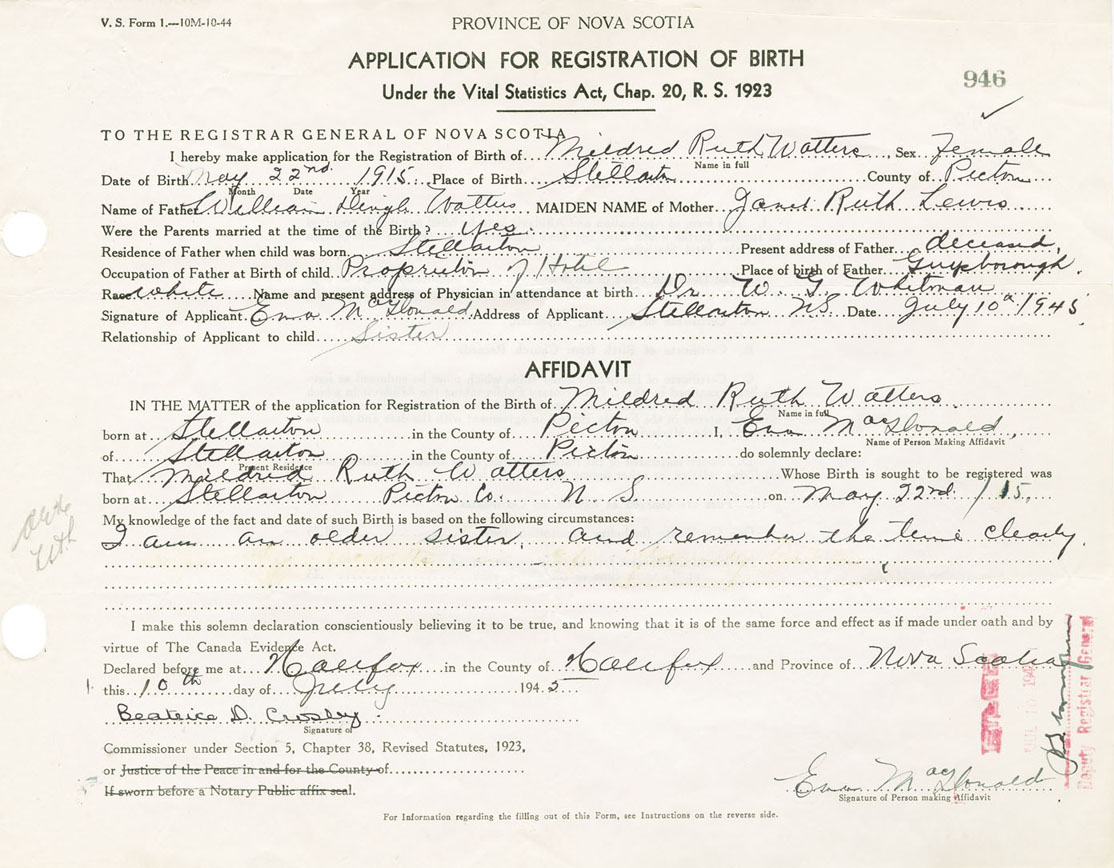 V. S. Form 1.—10M-10-44
PROVINCE OF NOVA SCOTIA
APPLICATION FOR REGISTRATION OF BIRTH
Under the Vital Statistics Act, Chap. 20, R. S. 1923
946
TO THE REGISTRAR GENERAL OF NOVA SCOTIA
I hereby make application for the Registration of Birth of Mildred Ruth Watters, Sex Female
Name in full
Date of Birth May 22nd 1915 Place of Birth Stellarton County of Pictou
Month Date Year
Name of Father William Watters MAIDEN NAME of Mother Janet Ruth Lewis
Were the Parents married at the time of the Birth? Yes.
Residence of Father when child was born Stellarton Present address of Father deceased,
Occupation of Father at Birth of child Proprietor of Hotel Place of birth of Father Guysborough.
Race White Name and present address of Physician in attendance at birth Dr. W. Whitman
Signature of Applicant Ena MacDonald Address of Applicant Stellarton NS. Date July 10th 1945
Relationship of Applicant to child Sister
AFFIDAVIT
IN THE MATTER of the application for Registration of the Birth of Mildred Ruth Watters
Name in full
born at Stellarton in the County of Pictou I, Ena MacDonald,
Name of Person Making Affidavit
of Stellarton in the County of Pictou do solemnly declare:
Present Residence
That Mildred Ruth Watters Whose Birth is sought to be registered was
born at Stellarton Pictou Co. N. S. on May 22nd /15.
My knowledge of the fact and date of such Birth is based on the following circumstances:
I am an older sister, and remember the time clearly.
I make this solemn declaration conscientiously believing it to be true, and knowing that it is of the same force and effect as if made under oath and by
virtue of The Canada Evidence Act.
Declared before me at Halifax in the County of Halifax and Province of Nova Scotia
this 10th day of July 1945
Beatrice D. Crosby
Signature of
Commissioner under Section 5, Chapter 38, Revised Statutes, 1923,
or Justice of the Peace in and for the County of
If sworn before a Notary Public affix seal.
Ena MacDonald
Signature of Person making Affidavit
For Information regarding the filling out of this Form, see Instructions on the reverse side.
Deputy Registrar General